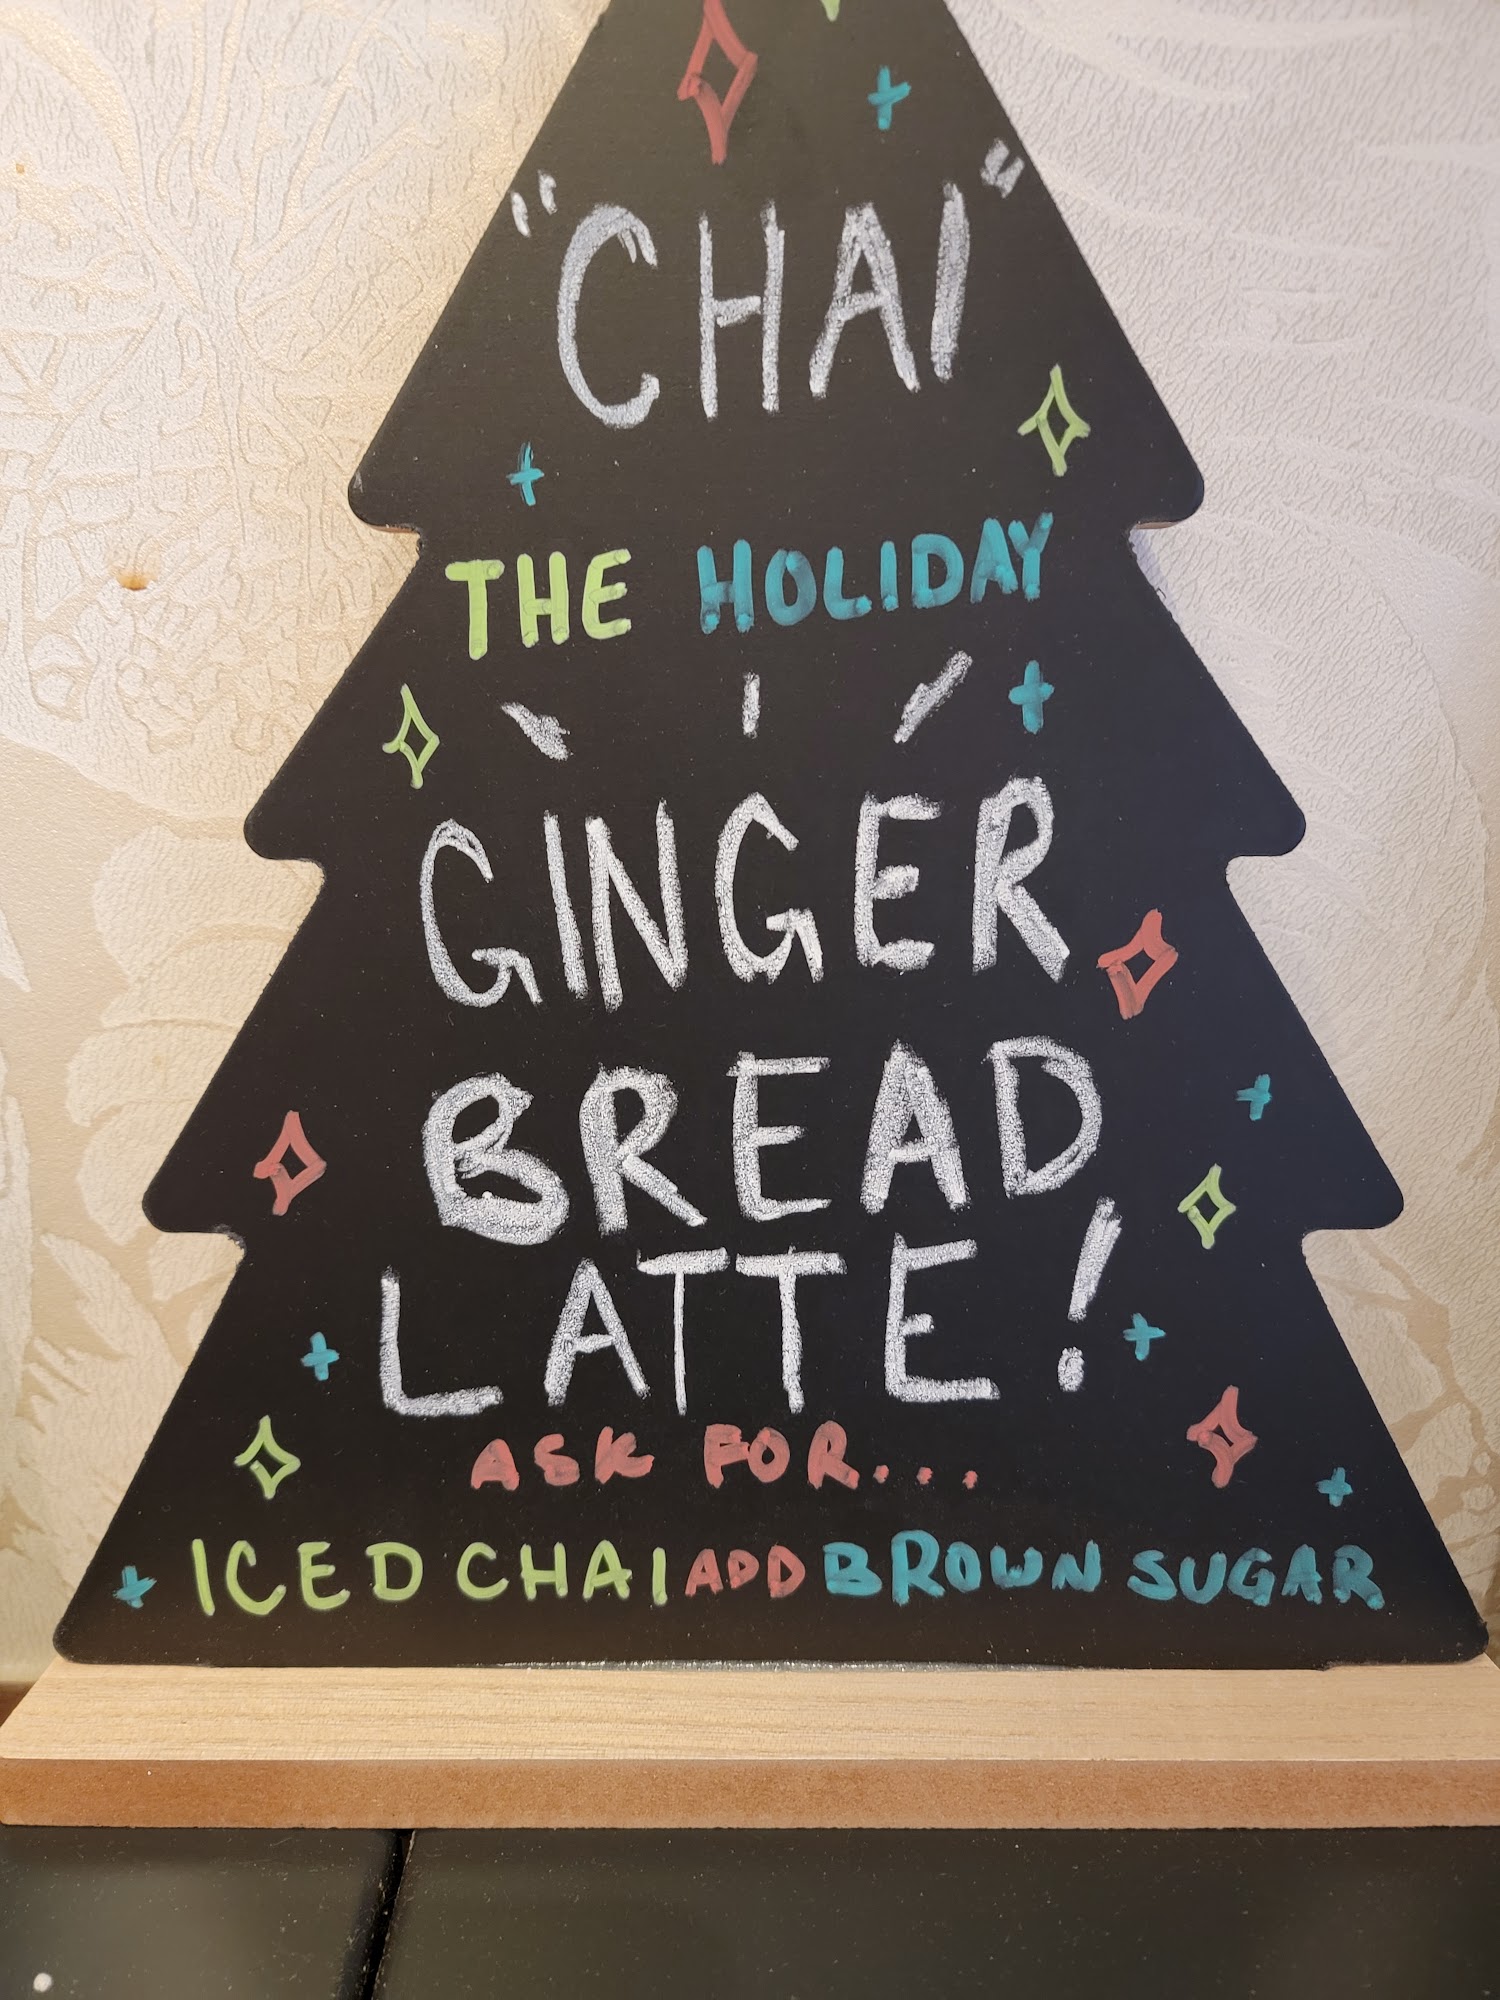 "CHAI"
THE HOLIDAY
GINGER
BREAD
LATTE!
ASK FOR...
ICED CHAI ADD BROWN SUGAR